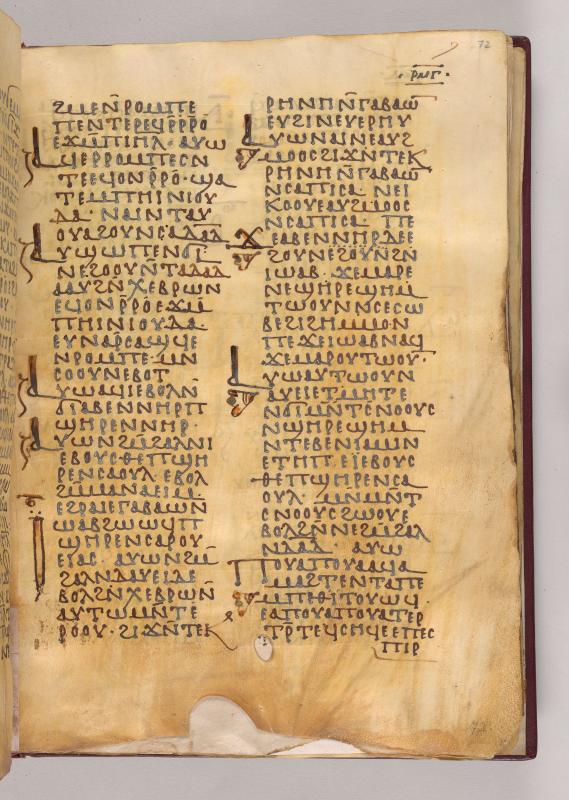 ⲣⲙⲅ
72
ϩⲙⲉⲛ̄ⲣⲟⲙⲡⲉ
ⲡⲉⲛⲧⲉⲣⲉϥⲣ̄ⲣ̄ⲣⲟ
ⲉϫⲙ̄ⲡⲓⲏⲗ· ⲁⲩⲱ
ⲁϥⲉⲣⲣⲟⲙⲡⲉⲥⲛ
ⲧⲉⲉϥⲟⲛ̄ⲣ̄ⲣⲟ· ϣⲁ
ⲧⲉⲙⲡⲏⲓⲛⲓⲟⲩ
ⲇⲁ· ⲛⲁⲓⲛⲧⲁⲩ
ⲟⲩⲁϩⲟⲩⲛⲥⲁⲇⲁⲇ
ⲁⲩϣⲱⲡⲉⲛϭⲓ
ⲛⲉϩⲟⲟⲩⲛ̄ⲧⲁⲇⲁⲇ
ⲁⲁⲩϩⲛ̄ⲭⲉⲃⲣⲱⲛ
ⲉϥⲟⲛ̄ⲣ̄ⲣⲟⲉϫⲙ̄
ⲡⲏⲓⲛⲓⲟⲩⲇⲁ·
ⲉⲩⲛⲁⲣⲥⲁϣϥⲉ
ⲛⲣⲟⲙⲡⲉ· ⲙⲛ
ⲥⲟⲟⲩⲛⲉⲃⲟⲧ
ⲁⲩⲱⲁϥⲉⲓⲉⲃⲟⲗⲛ̄
ϭⲓⲁⲃⲉⲛⲛⲏⲣⲡ
ϣⲏⲣⲉⲛⲛⲏⲣ·
ⲁⲩⲱⲛϩⲙ̄ϩⲁⲗⲛⲓ
ⲉⲃⲟⲩⲥⲑⲉⲡϣⲏ
ⲣⲉⲛⲥⲁⲟⲩⲗ· ⲉⲃⲟⲗ
ϩⲙ̄ⲙⲁⲛⲁⲉⲓⲙ
ⲉϩⲣⲁⲓⲉⲅⲁⲃⲁⲱⲛ̄
ⲓⲱⲁⲃϩⲱⲱϥⲡ
ϣⲏⲣⲉⲛⲥⲁⲣⲟⲩ
ⲉⲓⲁⲥ· ⲁⲩⲱⲛϩⲙ̄
ϩⲁⲗⲛⲇⲁⲩⲉⲓⲇⲉ
ⲃⲟⲗϩⲛ̄ⲭⲉⲃⲣⲱⲛ̄
ⲁⲩⲧⲱⲙⲛ̄ⲧⲉ
ⲣⲟⲟⲩ· ϩⲓϫⲛ̄ⲧⲉⲕ
ⲣⲏⲛⲏⲛ̄ⲅⲁⲃⲁⲱ
ⲉⲩϩⲓⲛⲉⲩⲉⲣⲏⲩ
ⲁⲩⲱⲛⲁⲓⲛⲉⲁⲩϩ
ⲙⲟⲟⲥϩⲓϫⲛ̄ⲧⲉⲕ
ⲣⲏⲛⲏⲛ̄ⲅⲁⲃⲁⲱ
ⲛⲥⲁⲡⲓⲥⲁ· ⲛⲉⲓ
ⲕⲟⲟⲩⲉⲁⲩϩⲙⲟⲟⲥ
ⲛⲥⲁⲡⲓⲥⲁ· ⲡⲉ
ϫⲉⲁⲃⲉⲛⲛⲏⲣⲇⲉⲉ
ϩⲟⲩⲛⲉϩⲟⲩⲛ̄ϩⲛ
ⲓⲱⲁⲃ· ϫⲉⲙⲁⲣⲉ
ⲛⲉϣⲏⲣⲉϣⲏⲙ
ⲧⲱⲟⲩⲛⲛⲥⲉⲥⲱ
ⲃⲉϩⲓϩⲏⲙⲙⲟⲛ
ⲡⲉϫⲉⲓⲱⲁⲃⲛⲁϥ
ϫⲉⲙⲁⲣⲟⲩⲧⲱⲟⲩ·
ⲁⲩⲱⲁⲩⲧⲱⲟⲩⲛ
ⲁⲩⲉⲓⲉⲧⲙⲏⲧⲉ
ⲛϭⲓⲙⲛ̄ⲧⲥⲛⲟⲟⲩⲥ
ⲛϣⲏⲣⲉϣⲏⲙ
ⲛⲧⲉⲃⲉⲛⲓⲁⲙⲓⲛ
ⲉⲧⲏⲡ· ⲉⲓ̈ⲉⲃⲟⲩⲥ
ⲑⲉⲡϣⲏⲣⲉⲛⲥⲁ
ⲟⲩⲗ· ⲙⲛⲙⲛ̄ⲧ
ⲥⲛⲟⲟⲩⲥϩⲱⲟⲩⲉ
ⲃⲟⲗϩⲛ̄ⲛⲉϩⲙ̄ϩⲁⲗ
ⲛⲇⲁⲇ· ⲁⲩⲱ
ⲡⲟⲩⲁⲡⲟⲩⲁⲁϥⲁ
ⲙⲁϩⲧⲉⲛⲧⲁⲡⲉ
ⲙⲡⲉⲑⲓⲧⲟⲩⲱϥ
ⲉⲁⲡⲟⲩⲁⲡⲟⲩⲁⲧⲉⲣ
ⲧⲣ̄ⲧⲉϥⲥⲏϥⲉⲉⲡⲉⲥ
ⲡⲓⲣ